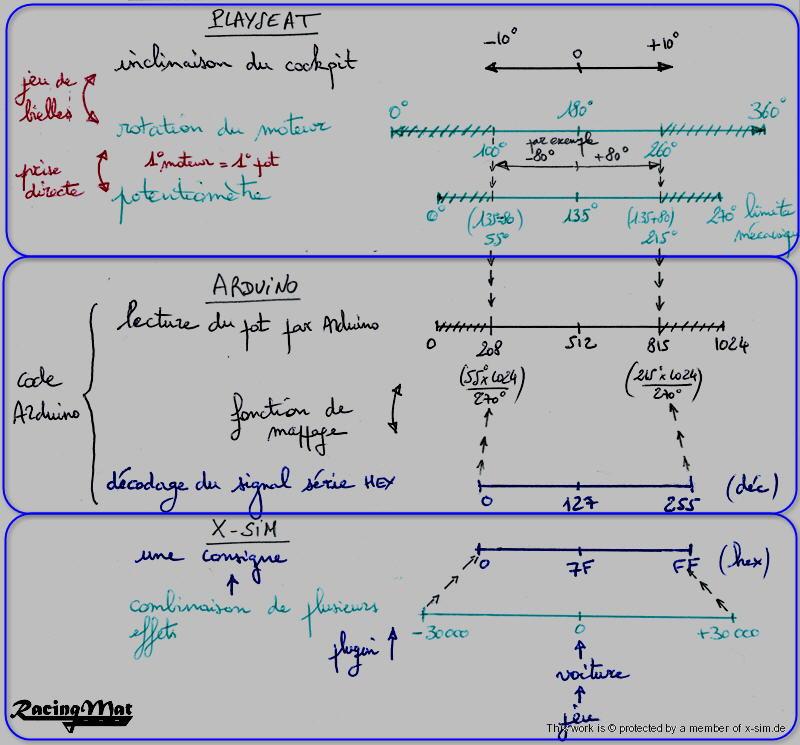 PLAYSEAT
-10° 0 +10°
inclinaison du cockpit
jeu de
bielles
0° 180° 360°
rotation du moteur
par exemple
100° -80° +80° 260°
prise
directe
1° moteur = 1° pot
potentiomètre
0° (135-80) 135° (135+80) 270° limite
55° 215° mécanique
ARDUINO
lecture du pot par Arduino
0 208 512 815 1024
(55°x1024) (215°x1024)
270° 270°
code
Arduino
fonction de
mappage
décodage du signal série HEX
0 127 255 (déc)
X-SIM
une consigne
0 7F FF (hex)
combinaison de plusieurs
effets
-30000 0 +30000
plugin
voiture
jeu
RacingMat
This work is © protected by a member of x-sim.de